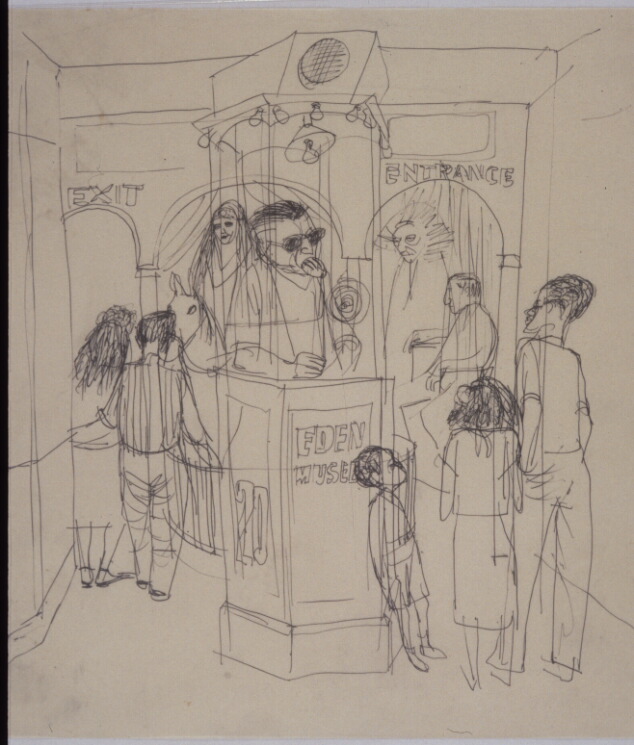 EXIT
ENTRANCE
EDEN
MUSEE
20